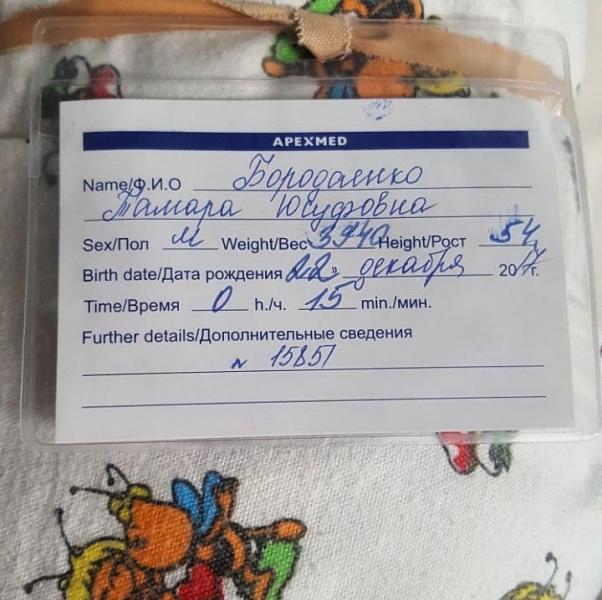 APEXMED
Name/Ф.И.О Бородаенко
Тамара Юсуфовна
Sex/Пол М Weight/Вес 3940 Height/Рост 54
Birth date/Дата рождения «22» декабря 2017г.
Time/Время 0 h./ч. 15 min./мин.
Further details/Дополнительные сведения
N 15851